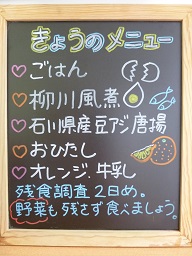 きょうのメニュー
♡ごはん
♡柳川風煮
♡石川県産豆アジ唐揚
♡おひたし
♡オレンジ.牛乳
残食調査2日め。
野菜も残さず食べましょう。